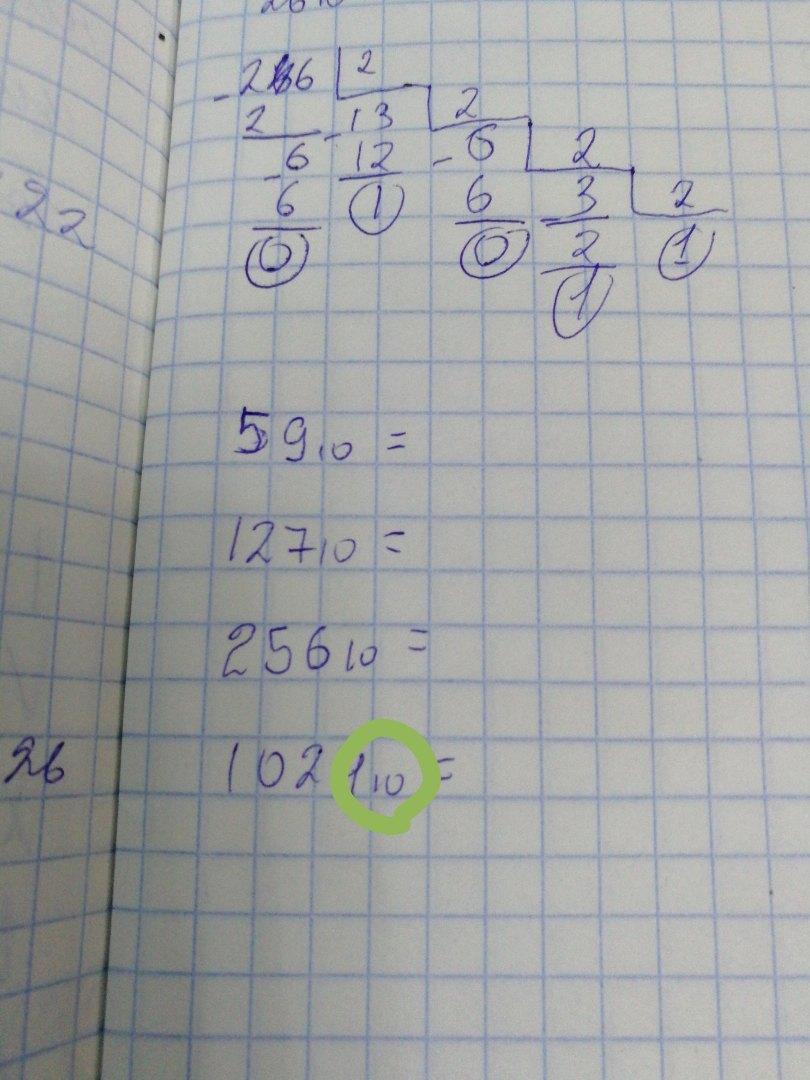 26 2
2 13 2
6 12 6 2
6 1 6 3 2
0 0 2 1
1
22
59₁₀ =
127₁₀ =
256₁₀ =
26
1021₁₀ =